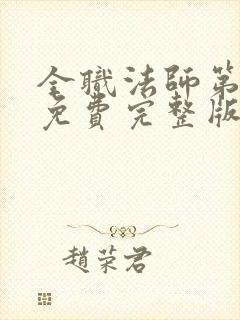 全職法師第
免費完整版
趙荣君